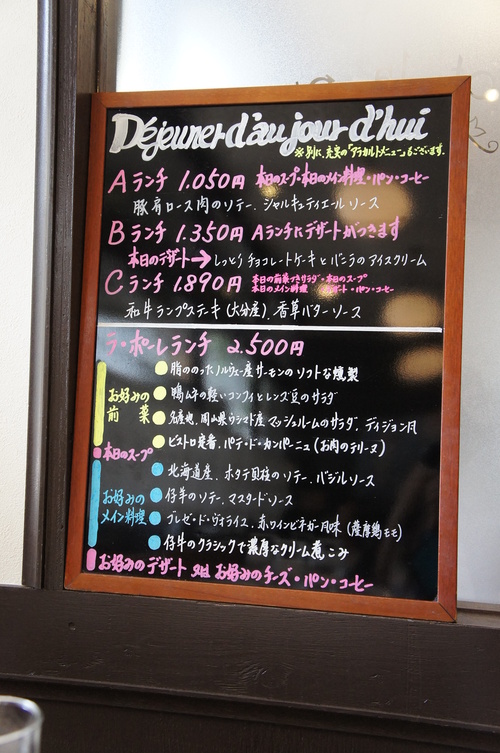 Déjeuner d'aujourd'hui
※別に、充実の「アラカルトメニュー」もございます。
Aランチ 1.050円 本日のスープ・本日のメイン料理・パン・コーヒー
豚肩ロース肉のソテー、シャルキュティエールソース
Bランチ 1.350円 Aランチにデザートがつきます
本日のデザート→しっとりチョコレートケーキとバニラのアイスクリーム
Cランチ 1.890円 本日の前菜つきサラダ・本日のスープ
本日のメイン料理 デザート・パン・コーヒー
和牛ランプステーキ(大分産)、香草バターソース
ラ・ポーレランチ 2.500円
お好みの前菜
脂ののったノルウェー産サーモンのソフトな燻製
鴨ムネの軽いコンフィとレンズ豆のサラダ
岡山県ウシマド産マッシュルームのサラダ、ディジョン風
ビストロ定番、パテ・ド・カンパーニュ(お肉のテリーヌ)
本日のスープ
お好みのメイン料理
北海道産、ホタテ貝柱のソテー、バジルソース
仔羊のソテー、マスタードソース
ブレゼ・ド・ヴォライユ、赤ワインビネガー風味(薩摩鶏モモ)
仔牛のクラシックで濃厚なクリーム煮こみ
お好みのデザート 又は お好みのチーズ・パン・コーヒー